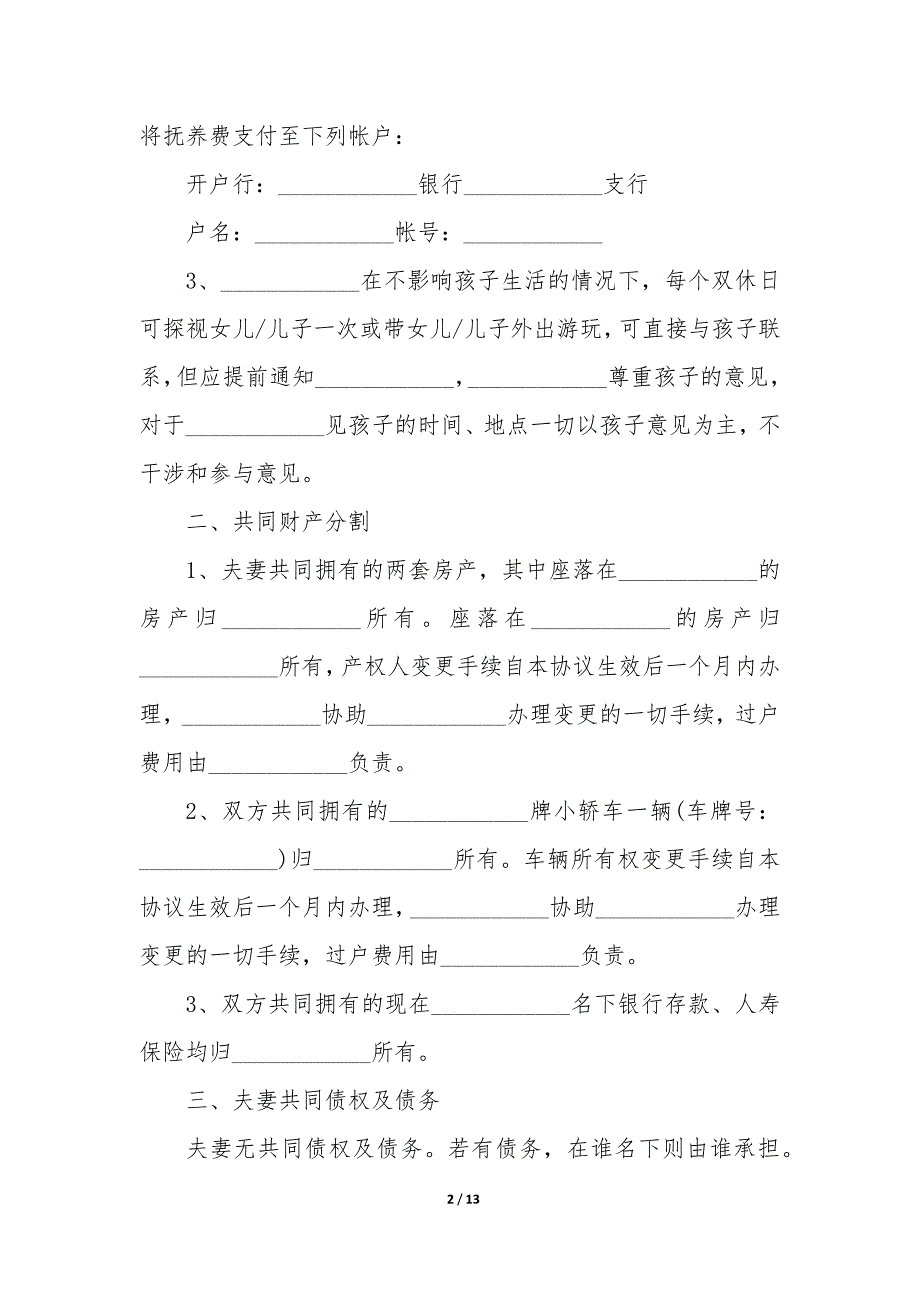 将抚养费支付至下列帐户：
开户行：____________银行____________支行
户名：____________帐号：____________
3、____________在不影响孩子生活的情况下，每个双休日
可探视女儿/儿子一次或带女儿/儿子外出游玩，可直接与孩子联
系，但应提前通知____________，____________尊重孩子的意见，
对于____________见孩子的时间、地点一切以孩子意见为主，不
干涉和参与意见。
二、共同财产分割
1、夫妻共同拥有的两套房产，其中座落在____________的
房产归____________所有。座落在____________的房产归
____________所有，产权人变更手续自本协议生效后一个月内办
理，____________协助____________办理变更的一切手续，过户
费用由____________负责。
2、双方共同拥有的____________牌小轿车一辆(车牌号：
____________)归____________所有。车辆所有权变更手续自本
协议生效后一个月内办理，____________协助____________办理
变更的一切手续，过户费用由____________负责。
3、双方共同拥有的现在____________名下银行存款、人寿
保险均归____________所有。
三、夫妻共同债权及债务
夫妻无共同债权及债务。若有债务，在谁名下则由谁承担。
2 / 13